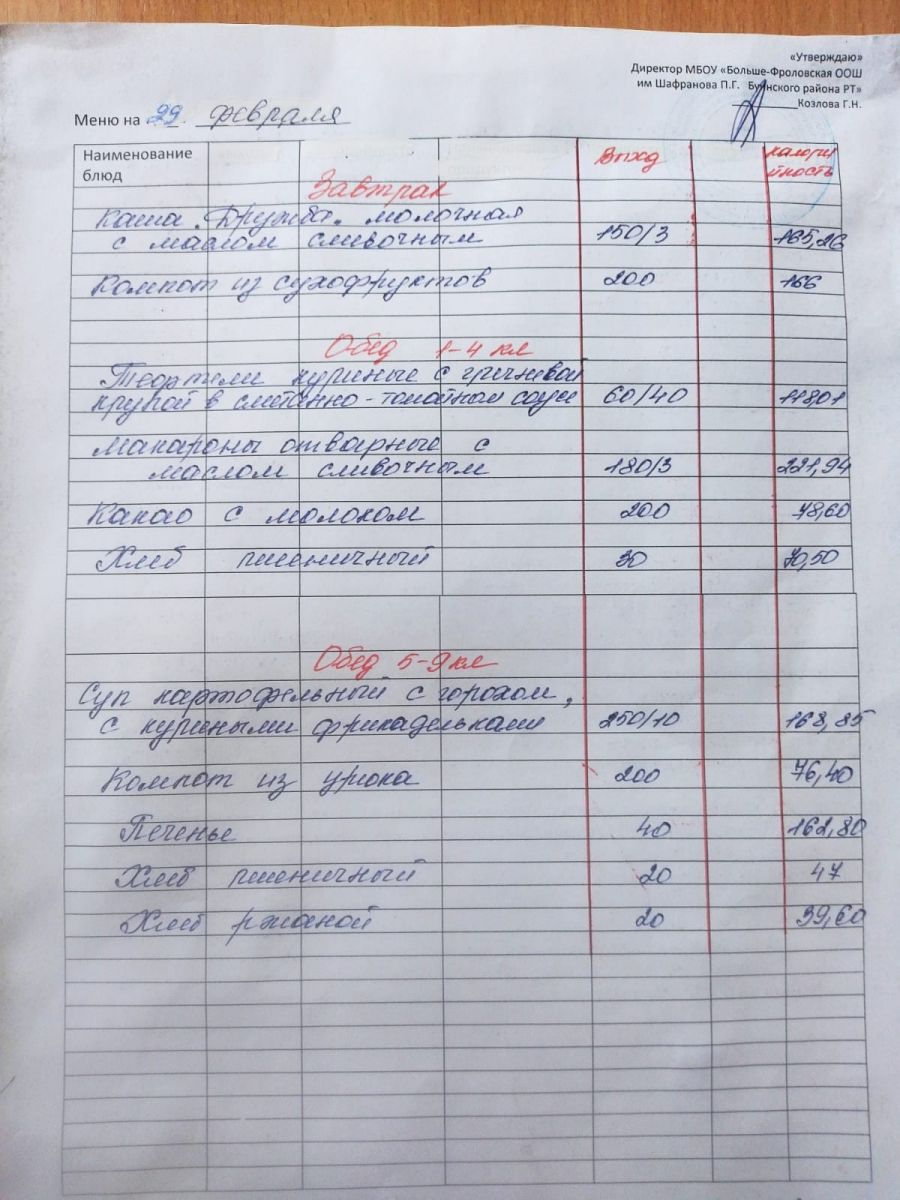 «Утверждаю»
Директор МБОУ «Больше-Фроловская ООШ
им Шафранова П.Г. Буинского района РТ»
Козлова Г.Н.
Меню на 29. февраля
Наименование блюд Выход калорийность
Завтрак
Каша "Дружба" молочная
с маслом сливочным 150/3 165,26
Компот из сухофруктов 200 166
Обед 1-4 кл
Тефтели куриные с гречневой
крупой в сметанно-томатном соусе 60/40 118,01
Макароны отварные с
маслом сливочным 180/3 221,94
Какао с молоком 200 78,60
Хлеб пшеничный 30 70,50
Обед 5-9 кл
Суп картофельный с горохом,
с куриными фрикадельками 250/10 168,85
Компот из урюка 200 76,40
Печенье 40 162,80
Хлеб пшеничный 20 47
Хлеб ржаной 20 39,60